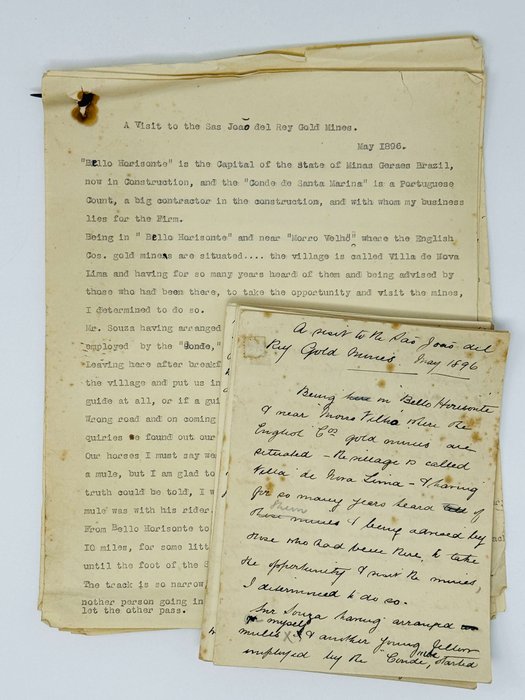 A Visit to the Sas João del Rey Gold Mines.
May 1896.
"Bello Horisonte" is the Capital of the State of Minas Geraes Brazil,
now in Construction, and the "Conde de Santa Marina" is a Portuguese
Count, a big contractor in the construction, and with whom my business
lies for the Firm.
Being in " Bello Horisonte" and near "Morro Velhō" where the English
Cos. gold mines are situated.... the village is called Villa de Nova
Lima and having for so many years heard of them and being advised by
those who had been there, to take the opportunity and visit the mines,
I determined to do so.
Mr. Souza having arranged
employed by the "Conde,"
Leaving here after breakf
the village and put us in
guide at all, or if a gui
Wrong road and on coming
quiries we found out our
Our horses I must say we
a mule, but I am glad to
truth could be told, I w
mule was with his rider.
From Bello Horisonte to
10 miles, for some litt
until the foot of the S
The track is so narrow,
nother person going in
let the other pass.
A visit to the São João del
Rey Gold Mines. May 1896
Being in Bello Horisonte
& near Morro Vilha where the
English Cos gold mines are
situated - the village is called
Villa de Nova Lima - & having
for so many years heard of
them & being advised by
those who had been there, to take
the opportunity & visit the mines,
I determined to do so.
Mr Souza having arranged
myself
mules X & another young fellow
employed by the "Conde, started